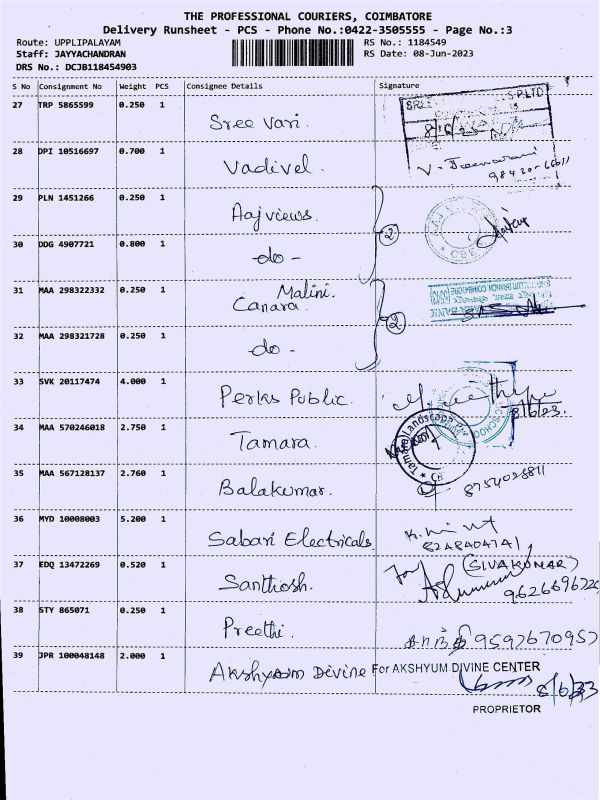 THE PROFESSIONAL COURIERS, COIMBATORE
Delivery Runsheet - PCS - Phone No.:0422-3505555 - Page No.:3
Route: UPPLIPALAYAM RS No.: 1184549
Staff: JAYYACHANDRAN RS Date: 08-Jun-2023
DRS No.: DCJB118454903
S No Consignment No Weight PCS Consignee Details Signature
27 TRP 5865599 0.250 1 Sree Vari.
28 DPI 10516697 0.700 1 Vadivel. 98420-66011
29 PLN 1451266 0.250 1 Aajviews.
2
30 DDG 4907721 0.800 1 -do-
31 MAA 298322332 0.250 1 Malini.
Canara.
2
32 MAA 298321728 0.250 1 -do-
33 SVK 20117474 4.000 1 Perks Public. 8/6/23.
34 MAA 570246018 2.750 1 Tamara.
35 MAA 567128137 2.760 1 Balakumar.
36 MYD 10008003 5.200 1 Sabari Electricals.
8248404741
37 EDQ 13472269 0.520 1 Santhosh. (SIVAKUMAR)
38 STY 865071 0.250 1 Preethi. 9597670957
39 JPR 100048148 2.000 1 Akshyaum Divine For AKSHYUM DIVINE CENTER
PROPRIETOR